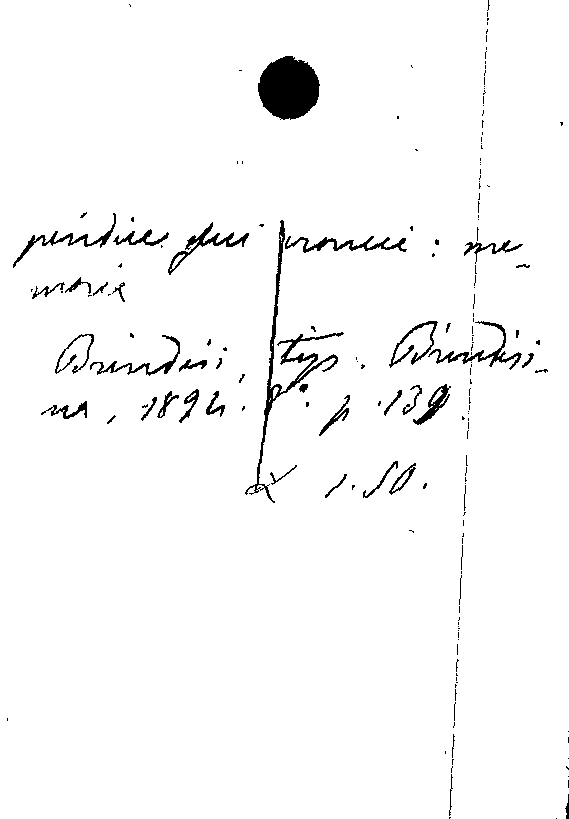 pendice sui cronici : me-
morie
Brindisi, tip. Brindisi-
na, 1894. 8°. p. 139.
L 1.50.